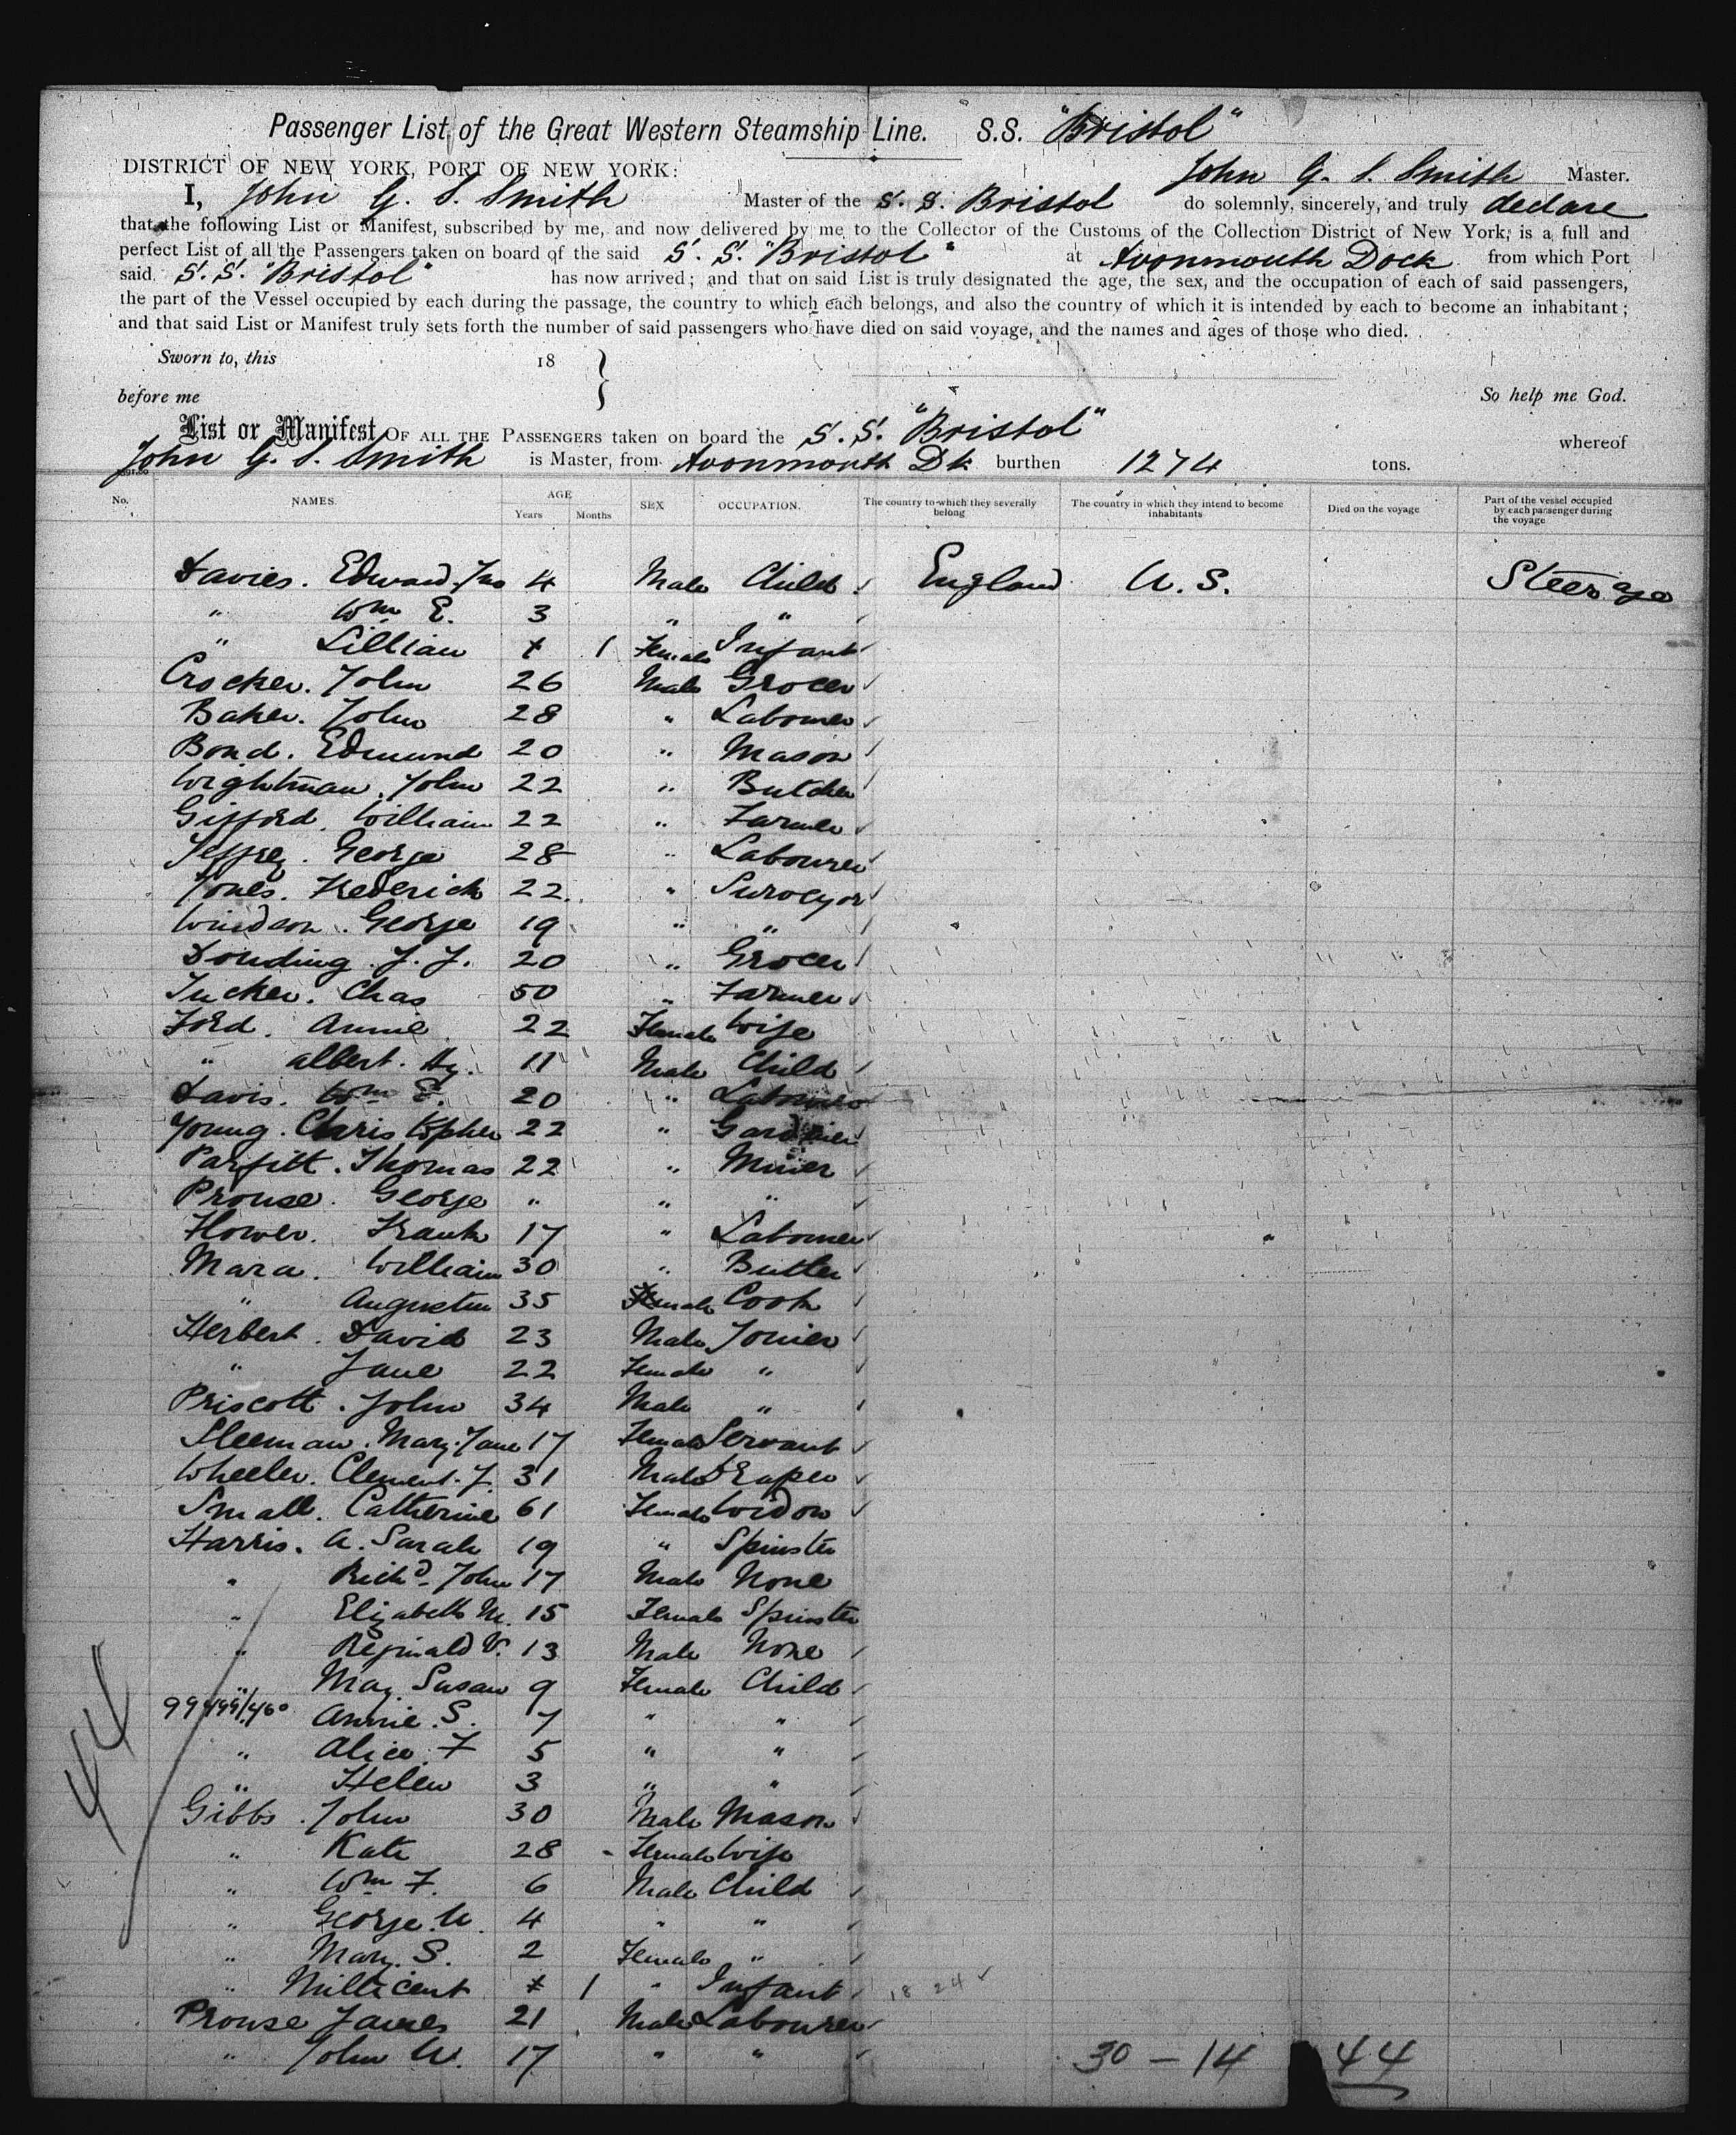 Passenger List of the Great Western Steamship Line. S.S. "Bristol"
DISTRICT OF NEW YORK, PORT OF NEW YORK: John G. S. Smith Master.
I, John G. S. Smith Master of the S. S. Bristol do solemnly, sincerely, and truly declare
that the following List or Manifest, subscribed by me, and now delivered by me to the Collector of the Customs of the Collection District of New York, is a full and
perfect List of all the Passengers taken on board of the said S. S. "Bristol" at Avonmouth Dock from which Port
said S. S. "Bristol" has now arrived; and that on said List is truly designated the age, the sex, and the occupation of each of said passengers,
the part of the Vessel occupied by each during the passage, the country to which each belongs, and also the country of which it is intended by each to become an inhabitant;
and that said List or Manifest truly sets forth the number of said passengers who have died on said voyage, and the names and ages of those who died.
Sworn to, this 18
before me So help me God.
List or Manifest OF ALL THE PASSENGERS taken on board the S. S. "Bristol" whereof
John G. S. Smith is Master, from Avonmouth Dk burthen 1274 tons.
No. NAMES. AGE Years Months SEX OCCUPATION. The country to which they severally belong The country in which they intend to become inhabitants Died on the voyage Part of the vessel occupied by each passenger during the voyage
Davies. Edward Jno 4 Male Child England U. S. Steerage
" Wm E. 3 " "
" Lillian 1 Female Infant
Crocker. John 26 Male Grocer
Baker. John 28 " Labourer
Bond. Edmund 20 " Mason
Wightman. John 22 " Butcher
Gifford. William 22 " Farmer
Jeffrey. George 28 " Labourer
Jones. Frederick 22 " Surveyor
Windson. George 19 " "
Donding. J. J. 20 " Grocer
Tucker. Chas 50 " Farmer
Ford. Annie 22 Female Wife
" Albert. Hy. 11 Male Child
Davis. Wm E. 20 " Labourer
Young. Christopher 22 " Gardener
Parfitt. Thomas 22 " Miner
Prouse. George " " "
Flower. Frank 17 " Labourer
Mara. William 30 " Butler
" Augustin 35 Female Cook
Herbert. David 23 Male Joiner
" Jane 22 Female "
Priscott. John 34 Male "
Sleeman. Mary Jane 17 Female Servant
Wheeler. Clement. J. 31 Male Draper
Small. Catherine 61 Female Widow
Harris. A. Sarah 19 " Spinster
" Richd. John 17 Male None
" Elizabeth M. 15 Female Spinster
" Reginald V. 13 Male None
" May Susan 9 Female Child
Annie. S. 7 " "
" Alice. F 5 " "
" Helen 3 " "
Gibbs. John 30 Male Mason
" Kate 28 Female Wife
" Wm F. 6 Male Child
" George. W. 4 " "
" Mary. S. 2 Female "
" Millicent 1 " Infant 18 24
Prouse James 21 Male Labourer
" John W. 17 " "
44
30 - 14 44